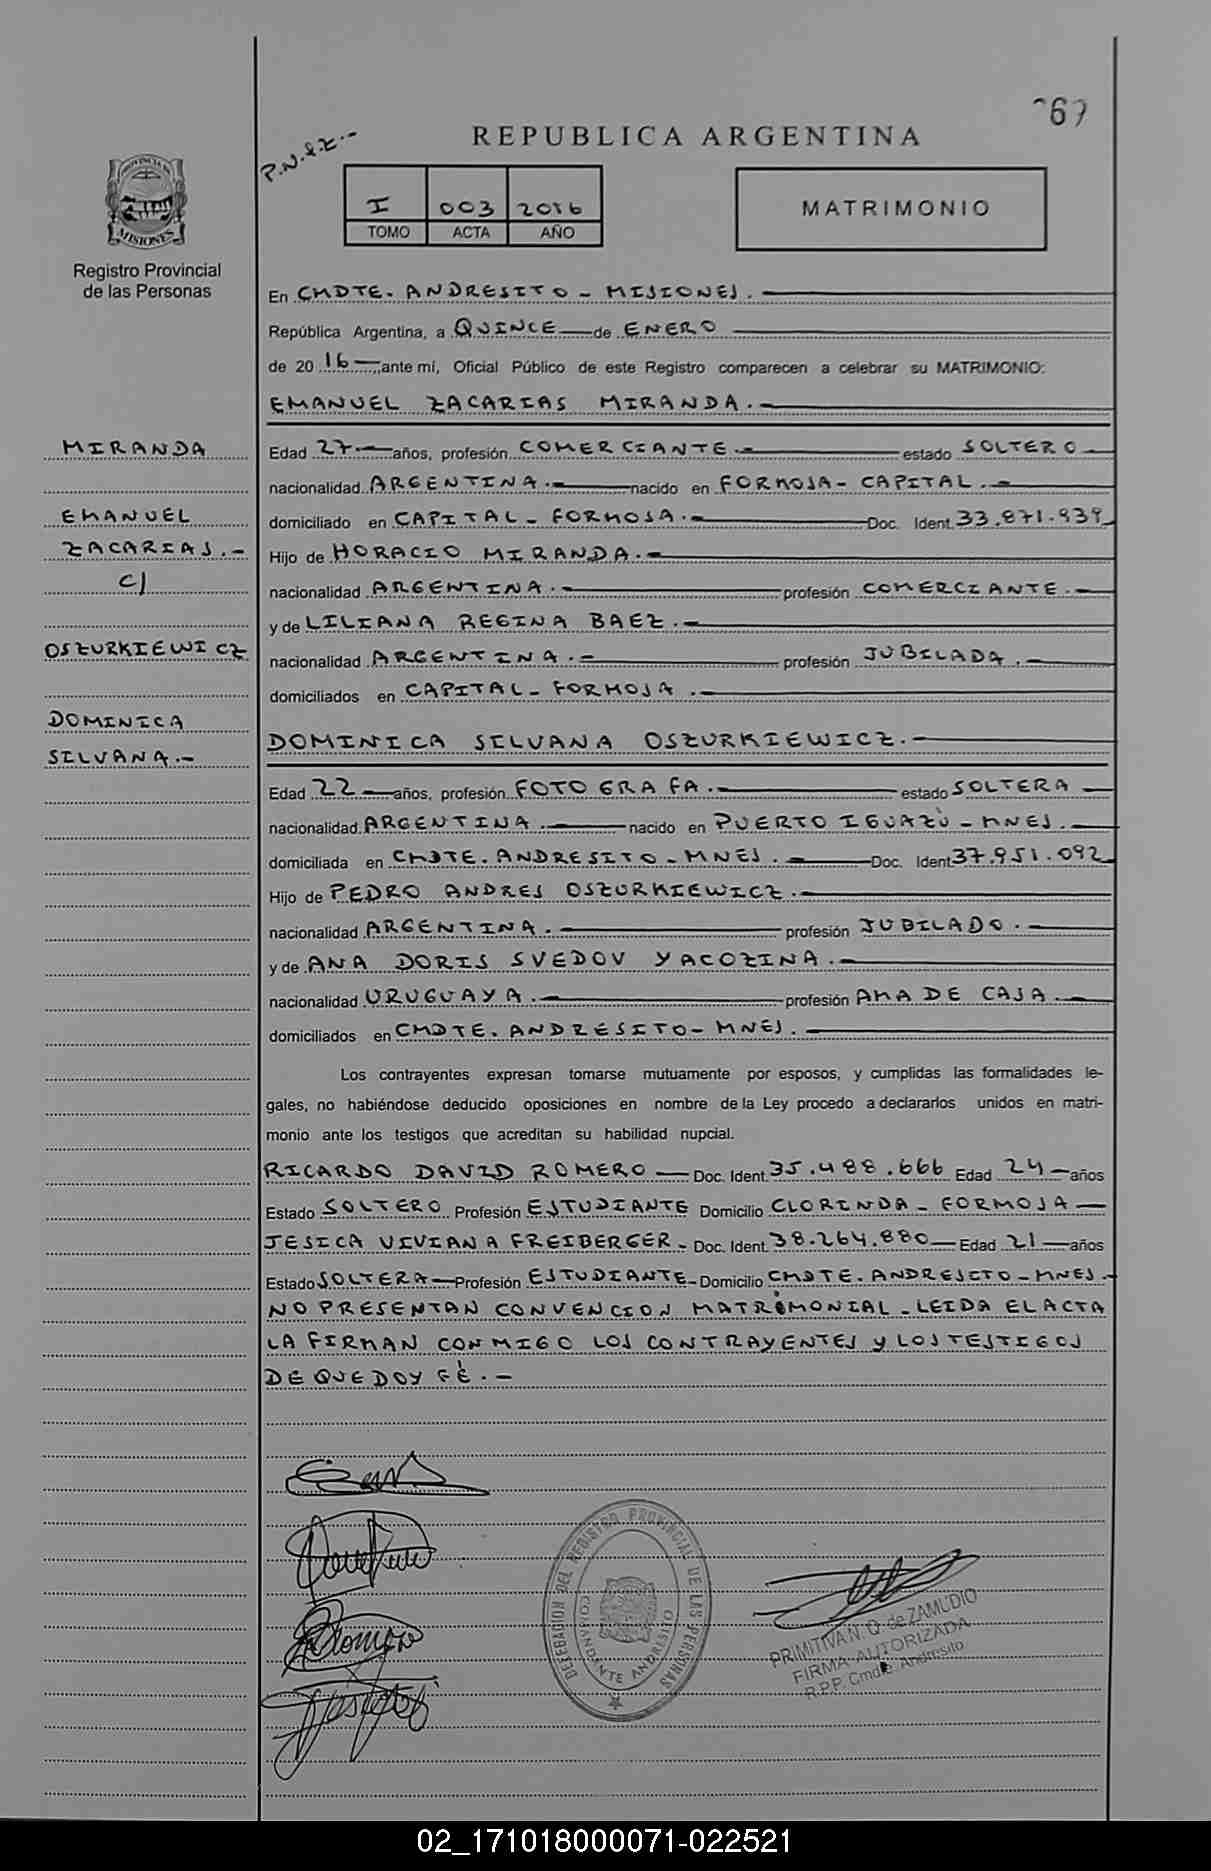 067
REPUBLICA ARGENTINA
P.N.&Z.-
I 003 2016
TOMO ACTA AÑO
MATRIMONIO
PROVINCIA DE
MISIONES
Registro Provincial
de las Personas
En CMDTE. ANDRESITO - MISIONES.
República Argentina, a QUINCE de ENERO
de 2016 ante mí, Oficial Público de este Registro comparecen a celebrar su MATRIMONIO:
EMANUEL ZACARIAS MIRANDA.-
MIRANDA
EMANUEL
ZACARIAS.-
C/
OSZURKIEWICZ
DOMINICA
SILVANA.-
Edad 27 años, profesión COMERCIANTE.- estado SOLTERO
nacionalidad ARGENTINA.- nacido en FORMOSA - CAPITAL.-
domiciliado en CAPITAL - FORMOSA.- Doc. Ident. 33.871.939
Hijo de HORACIO MIRANDA.-
nacionalidad ARGENTINA.- profesión COMERCIANTE.-
y de LILIANA REGINA BAEZ.-
nacionalidad ARGENTINA.- profesión JUBILADA.-
domiciliados en CAPITAL - FORMOSA.-
DOMINICA SILVANA OSZURKIEWICZ.-
Edad 22 años, profesión FOTOGRAFA.- estado SOLTERA
nacionalidad ARGENTINA.- nacido en PUERTO IGUAZÙ - MNES.-
domiciliada en CMDTE. ANDRESITO - MNES.- Doc. Ident 37.951.092
Hijo de PEDRO ANDRES OSZURKIEWICZ.-
nacionalidad ARGENTINA.- profesión JUBILADO.-
y de ANA DORIS SVEDOV YACOZINA.-
nacionalidad URUGUAYA.- profesión AMA DE CASA.-
domiciliados en CMDTE. ANDRESITO - MNES.-
Los contrayentes expresan tomarse mutuamente por esposos, y cumplidas las formalidades le-
gales, no habiéndose deducido oposiciones en nombre de la Ley procedo a declararlos unidos en matri-
monio ante los testigos que acreditan su habilidad nupcial.
RICARDO DAVID ROMERO Doc. Ident. 35.488.666 Edad 24 años
Estado SOLTERO Profesión ESTUDIANTE Domicilio CLORINDA - FORMOSA
JESICA VIVIANA FREIBERGER - Doc. Ident. 38.264.880 Edad 21 años
Estado SOLTERA Profesión ESTUDIANTE - Domicilio CMDTE. ANDRESITO - MNES.-
NO PRESENTAN CONVENCION MATRIMONIAL - LEIDA EL ACTA
LA FIRMAN CONMIGO LOS CONTRAYENTES Y LOS TESTIGOS
DE QUE DOY FÈ.-
DELEGACION DEL REGISTRO PROVINCIAL DE LAS PERSONAS
COMANDANTE ANDRESITO
PRIMITIVA N. Q. de ZAMUDIO
FIRMA AUTORIZADA
R.P.P. Cmdte. Andresito
02_171018000071-022521